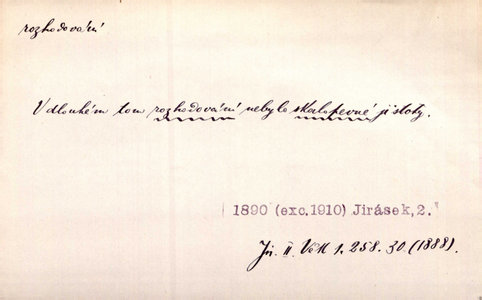 rozhodování
V dlouhém tom rozhodování nebylo skalopevné jistoty.
1890 (exc.1910) Jirásek,2.
Jir. II. Věk 1. 258. 30 (1888).